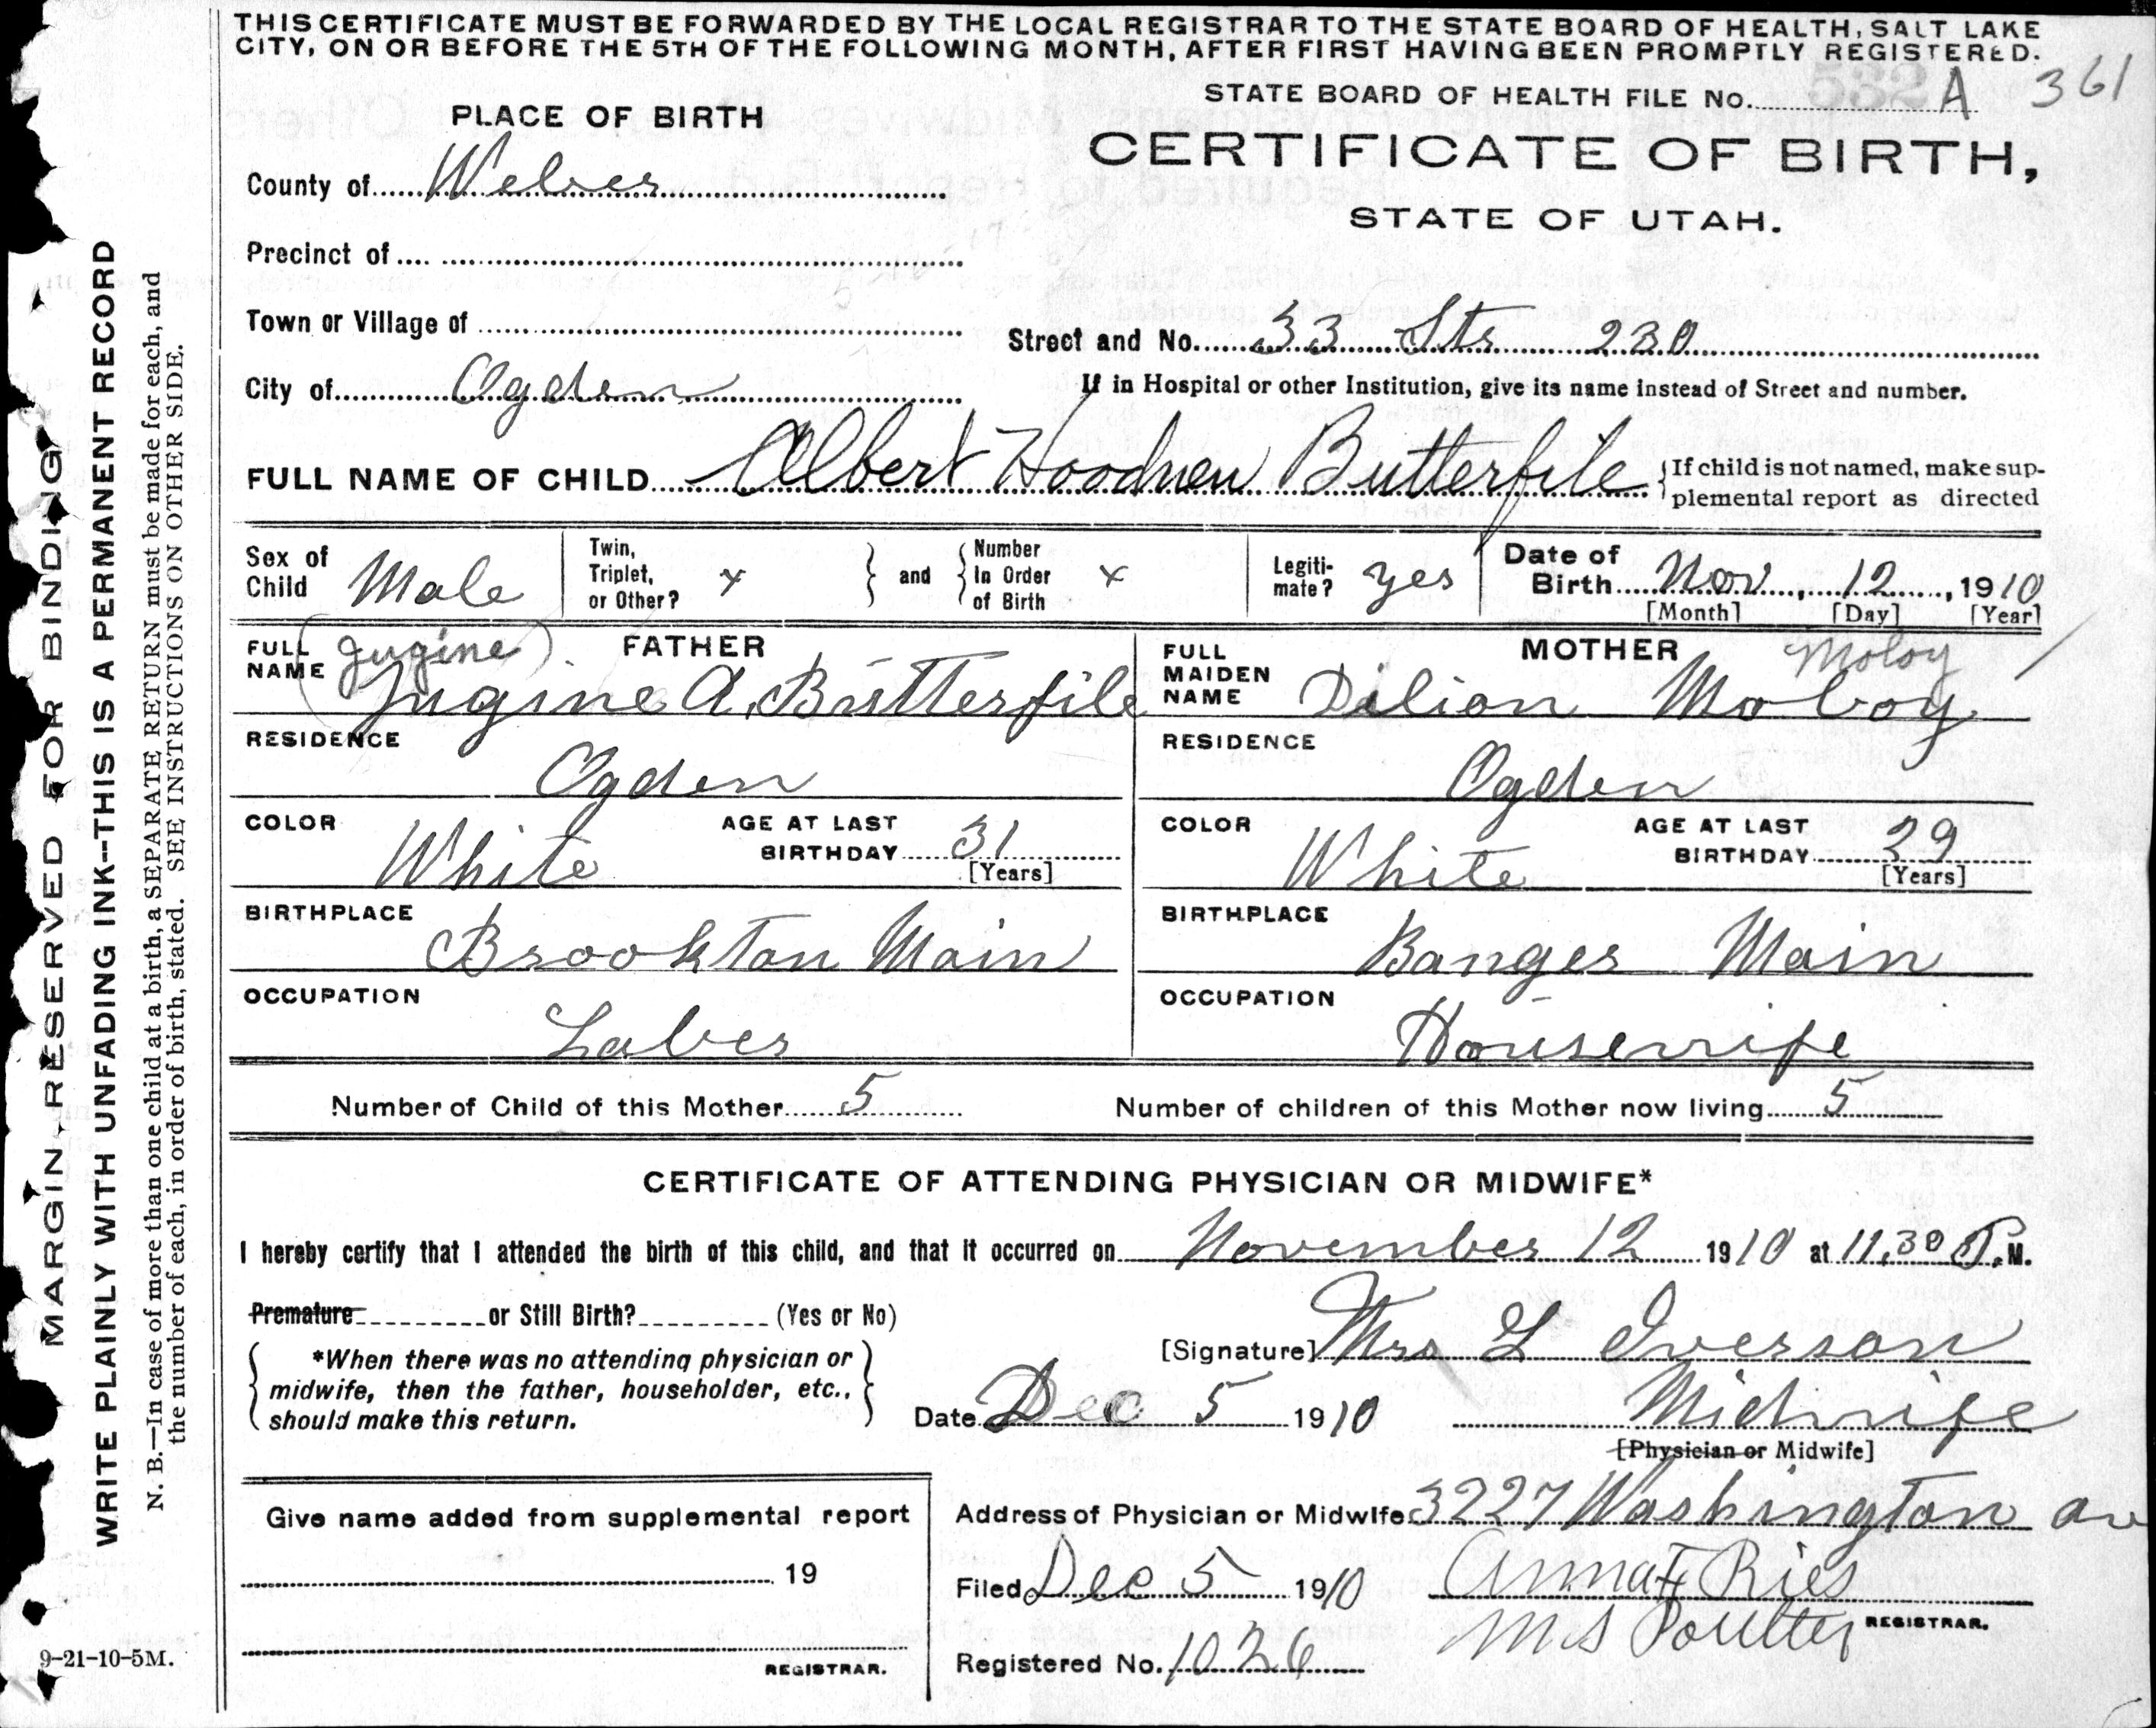 THIS CERTIFICATE MUST BE FORWARDED BY THE LOCAL REGISTRAR TO THE STATE BOARD OF HEALTH, SALT LAKE
CITY, ON OR BEFORE THE 5TH OF THE FOLLOWING MONTH, AFTER FIRST HAVING BEEN PROMPTLY REGISTERED.
STATE BOARD OF HEALTH FILE No. A 361
PLACE OF BIRTH
CERTIFICATE OF BIRTH,
STATE OF UTAH.
County of Weber
Precinct of
Town or Village of
Street and No. 33 Sts 230
City of Ogden
If in Hospital or other Institution, give its name instead of Street and number.
FULL NAME OF CHILD Albert Butterfile
If child is not named, make sup-
plemental report as directed
Sex of Child Male
Twin, Triplet, or Other? x
and
Number In Order of Birth x
Legiti-mate? yes
Date of Birth Nov, 12, 1910
[Month] [Day] [Year]
FATHER
FULL NAME (Jugine) Jugine A. Butterfile
MOTHER Moloy
FULL MAIDEN NAME Dilian Moloy
RESIDENCE Ogden
RESIDENCE Ogden
COLOR White
AGE AT LAST BIRTHDAY 31 [Years]
COLOR White
AGE AT LAST BIRTHDAY 29 [Years]
BIRTHPLACE Brookton Main
BIRTHPLACE Banger Main
OCCUPATION Laber
OCCUPATION Housewife
Number of Child of this Mother 5
Number of children of this Mother now living 5
CERTIFICATE OF ATTENDING PHYSICIAN OR MIDWIFE*
I hereby certify that I attended the birth of this child, and that it occurred on November 12 1910 at 11.30 P.M.
Premature or Still Birth? (Yes or No)
*When there was no attending physician or
midwife, then the father, householder, etc.,
should make this return.
[Signature] Mrs L Iverson
Date Dec 5 1910
Midwife
[Physician or Midwife]
Give name added from supplemental report
19
REGISTRAR.
Address of Physician or Midwife 3227 Washington av
Filed Dec 5 1910
Anna F Ries
REGISTRAR.
MS Poulter
Registered No. 1026
9-21-10-5M.
MARGIN RESERVED FOR BINDING
WRITE PLAINLY WITH UNFADING INK--THIS IS A PERMANENT RECORD
N. B.—In case of more than one child at a birth, a SEPARATE RETURN must be made for each, and
the number of each, in order of birth, stated. SEE INSTRUCTIONS ON OTHER SIDE.